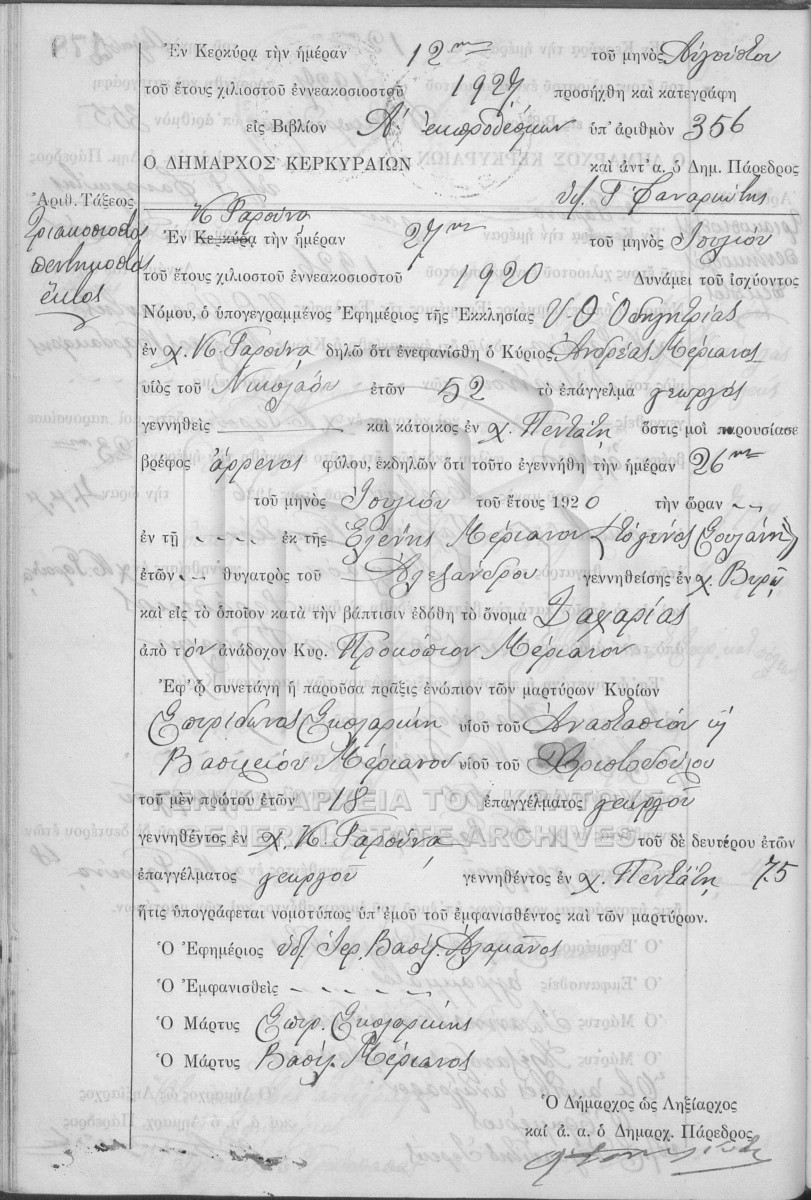 Ἐν Κερκύρᾳ τὴν ἡμέραν 12ην τοῦ μηνὸς Αὐγούστου
τοῦ ἔτους χιλιοστοῦ ἐννεακοσιοστοῦ 1927 προσήχθη καὶ κατεγράφη
εἰς Βιβλίον Α' ἐκπροθέσμων ὑπ' ἀριθμὸν 356
Ο ΔΗΜΑΡΧΟΣ ΚΕΡΚΥΡΑΙΩΝ καὶ ἀντ' α. ὁ Δημ. Πάρεδρος
Ἀριθ. Τάξεως
Τριακοσιοστὸς
πεντηκοστὸς
ἕκτος
Κ Γαρούνα
Ἐν Κερκύρᾳ τὴν ἡμέραν 27ην τοῦ μηνὸς Ἰουλίου
τοῦ ἔτους χιλιοστοῦ ἐννεακοσιοστοῦ 1920 Δυνάμει τοῦ ἰσχύοντος
Νόμου, ὁ ὑπογεγραμμένος Ἐφημέριος τῆς Ἐκκλησίας Υ. Θ Ὁδηγητρίας
ἐν χ. Κ. Γαρούνα δηλῶ ὅτι ἐνεφανίσθη ὁ Κύριος Ἀνδρέας Μέριανος
υἱὸς τοῦ Νικολάου ἐτῶν 52 τὸ ἐπάγγελμα γεωργός
γεννηθεὶς καὶ κάτοικος ἐν χ. Πεντάτη ὅστις μοὶ παρουσίασε
βρέφος ἄρρενος φύλου, ἐκδηλῶν ὅτι τοῦτο ἐγεννήθη τὴν ἡμέραν 26ην
τοῦ μηνὸς Ἰουλίου τοῦ ἔτους 1920 τὴν ὥραν
ἐν τῇ ἐκ τῆς Ἑλένης Μέριανου (τὸ γένος Σουλάνη)
ἐτῶν θυγατρὸς τοῦ Ἀλεξάνδρου γεννηθείσης ἐν χ.
καὶ εἰς τὸ ὁποῖον κατὰ τὴν βάπτισιν ἐδόθη τὸ ὄνομα Ζαχαρίας
ἀπὸ τὸν ἀνάδοχον Κυρ. Προκόπιον Μέριανον
Ἐφ' ᾧ συνετάγη ἡ παροῦσα πρᾶξις ἐνώπιον τῶν μαρτύρων Κυρίων
Σπυρίδωνος Σκολαρίκη υἱοῦ τοῦ Ἀναστασίου ἢ
Βασιλείου Μέριανου υἱοῦ τοῦ Χριστοδούλου
τοῦ μὲν πρώτου ἐτῶν 18 ἐπαγγέλματος γεωργοῦ
ΓΕΝΙΚΑ ΑΡΧΕΙΑ ΤΟΥ ΚΡΑΤΟΥΣ
GENERAL STATE ARCHIVES
γεννηθέντος ἐν χ. Κ. Γαρούνα τοῦ δὲ δευτέρου ἐτῶν
ἐπαγγέλματος γεωργοῦ γεννηθέντος ἐν χ. Πεντάτη 75
ἥτις ὑπογράφεται νομοτύπως ὑπ' ἐμοῦ τοῦ ἐμφανισθέντος καὶ τῶν μαρτύρων.
Ὁ Ἐφημέριος ὑπ. Ἱερ. Βασίλ. Ἀλαμᾶνος
Ὁ Ἐμφανισθεὶς
Ὁ Μάρτυς Σπυρ. Σκολαρίκης
Ὁ Μάρτυς Βασίλ. Μέριανος
Ὁ Δήμαρχος ὡς Ληξίαρχος
καὶ ἀ. α. ὁ Δημαρχ. Πάρεδρος